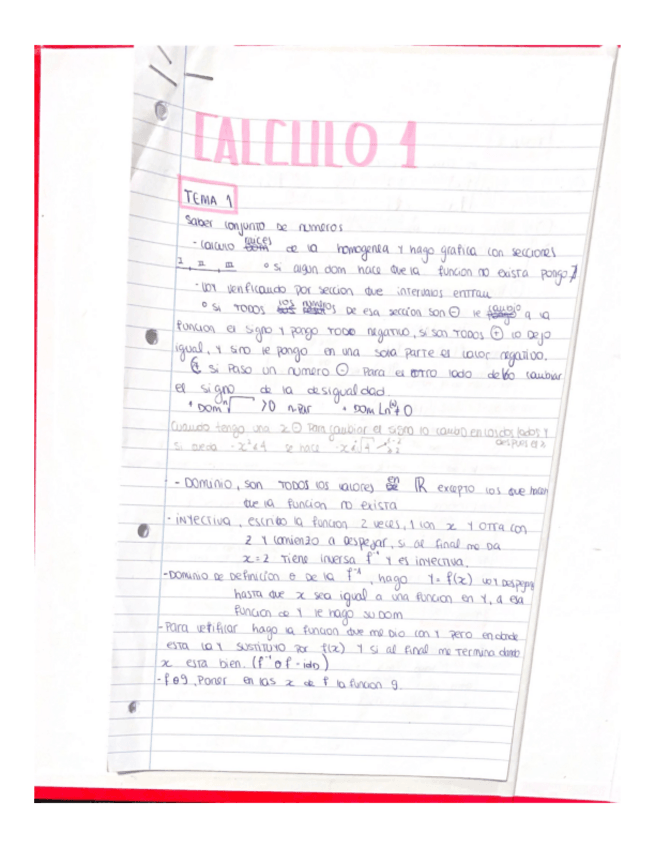 CALCULO 1
TEMA 1
Saber conjunto de numeros
- calculo raices de la homogenea y hago grafica con secciones
I II III ° si algun dom hace que la funcion no exista pongo
- voy verificando por seccion que intervalos entran
° si TODOS los de esa sección son ⊖ le cambio a la
funcion el signo y pongo todo negativo, si son TODOS ⊕ lo dejo
igual, y sino le pongo en una sola parte el valor negativo.
si paso un numero ⊖ para el otro lado debo cambiar
el signo de la desigualdad
• Dom ⁿ√ >0 n-par • Dom Ln
Cuando tengo una x ⊖ para cambiar el signo lo cambio en los dos lados y
si queda -x²≤4 se hace después es
- Dominio, son TODOS los valores en ℝ excepto los que hacen
que la funcion no exista
- inyectiva, escribo la funcion 2 veces, 1 con x y otra con
z y comienzo a despejar, si al final me da
x=z tiene inversa f⁻¹ y es inyectiva.
- Dominio de definicion o de la f⁻¹, hago y=f(x) voy despejando
hasta que x sea igual a una funcion en y, a esa
funcion de y le hago su dom
- Para verificar hago la funcion que me dio con y pero en donde
esta la y sustituyo por f(x) y si al final me termina dando
x esta bien. (f⁻¹ o f = idD)
- f o g, Poner en las x de f la funcion g.